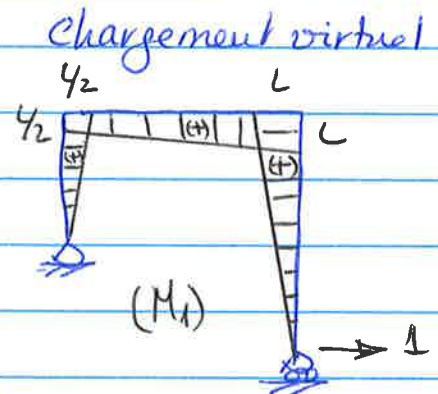 Chargement virtuel
L/2 L
L/2 (+) L
(+) (+)
(M₁)
1